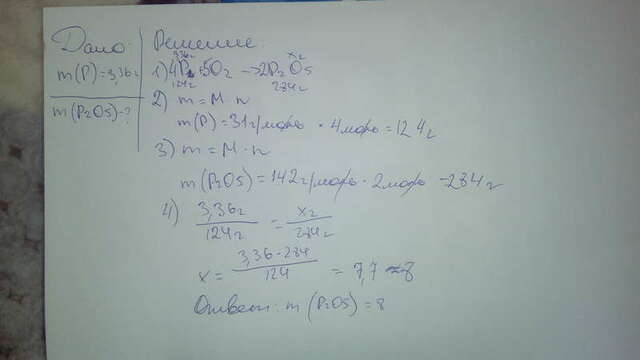 Дано:
m(P)=3,36г
m(P2O5)-?
Решение:
3,36г xг
1) 4P+5O2 → 2P2O5
124г 284г
2) m = M · n
m(P) = 31г/моль · 4моль = 124г
3) m = M · n
m(P2O5) = 142г/моль · 2моль = 284г
4) 3,36г / 124г = xг / 284г
x = 3,36 · 284 / 124 = 7,7 ≈ 8
Ответ: m (P2O5) = 8